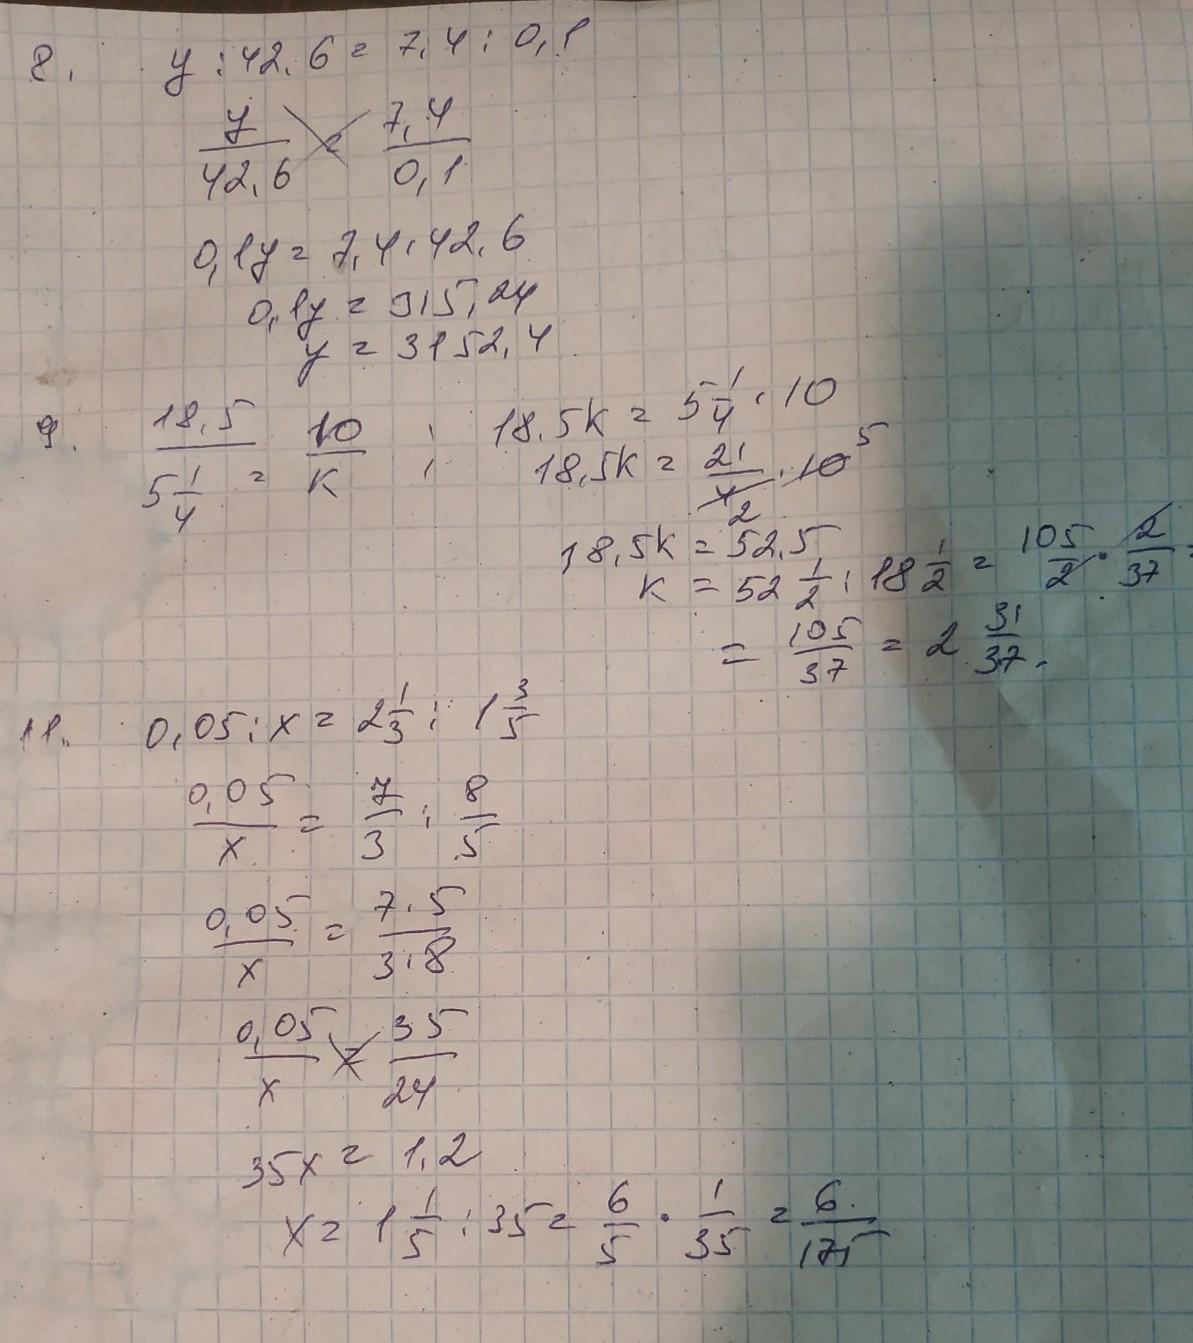 8. y : 42,6 = 7,4 : 0,1
y/42,6 = 7,4/0,1
0,1y = 7,4 · 42,6
0,1y = 315,24
y = 3152,4
9. 18,5/5 1/4 = 10/K ; 18,5K = 5 1/4 · 10
18,5K = 21/4 2 · 10 5
18,5K = 52,5
K = 52 1/2 : 18 1/2 = 105/2 · 2/37 =
= 105/37 = 2 31/37.
11. 0,05 : x = 2 1/3 : 1 3/5
0,05/x = 7/3 : 8/5
0,05/x = 7·5/3·8
0,05/x = 35/24
35x = 1,2
x = 1 1/5 : 35 = 6/5 · 1/35 = 6/175